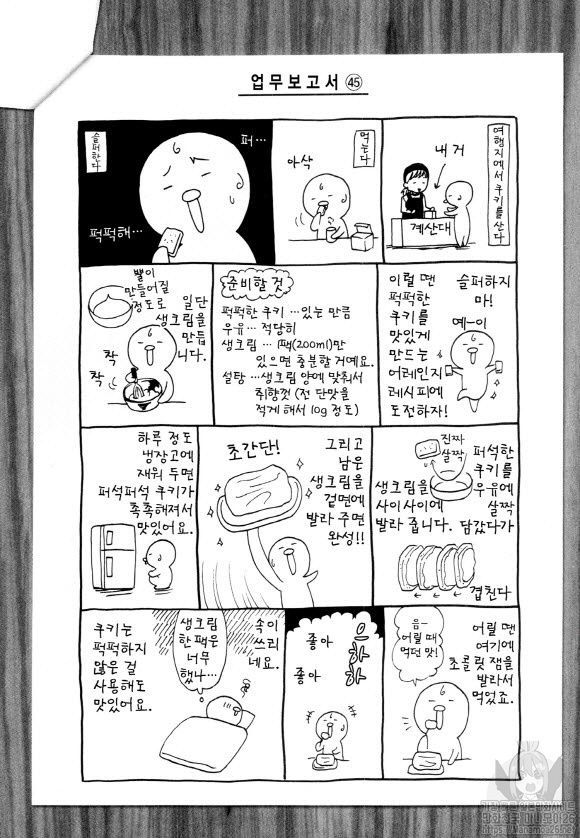 업무보고서 ㊺
여행지에서 쿠키를 산다
내 거
계산대
먹는다
아삭
슬퍼한다
퍼…
퍽퍽해…
슬퍼하지
마!
예-이
이럴 땐
퍽퍽한
쿠키를
맛있게
만드는
어레인지
레시피에
도전하자!
준비할 것
퍽퍽한 쿠키 …있는 만큼
우유 …적당히
생크림 …1팩(200ml)만
있으면 충분할 거예요.
설탕 …생크림 양에 맞춰서
취향껏 (전 단맛을
적게 해서 10g 정도)
뿔이
만들어질
정도로
일단
생크림을
만듭
니다.
착
착
퍼석한
쿠키를
우유에
살짝
담갔다가
진짜
살짝
생크림을
사이사이에
발라 줍니다.
겹친다
그리고
남은
생크림을
겉면에
발라 주면
완성!!
초간단!
하루 정도
냉장고에
재워 두면
퍼석퍼석 쿠키가
촉촉해져서
맛있어요.
어릴 땐
여기에
초콜릿 잼을
발라서
먹었죠.
음~
어릴 때
먹던 맛!
으하하
좋아
좋아
속이
쓰리
네요.
생크림
한 팩은
너무
했나…
쿠키는
퍽퍽하지
않은 걸
사용해도
맛있어요.